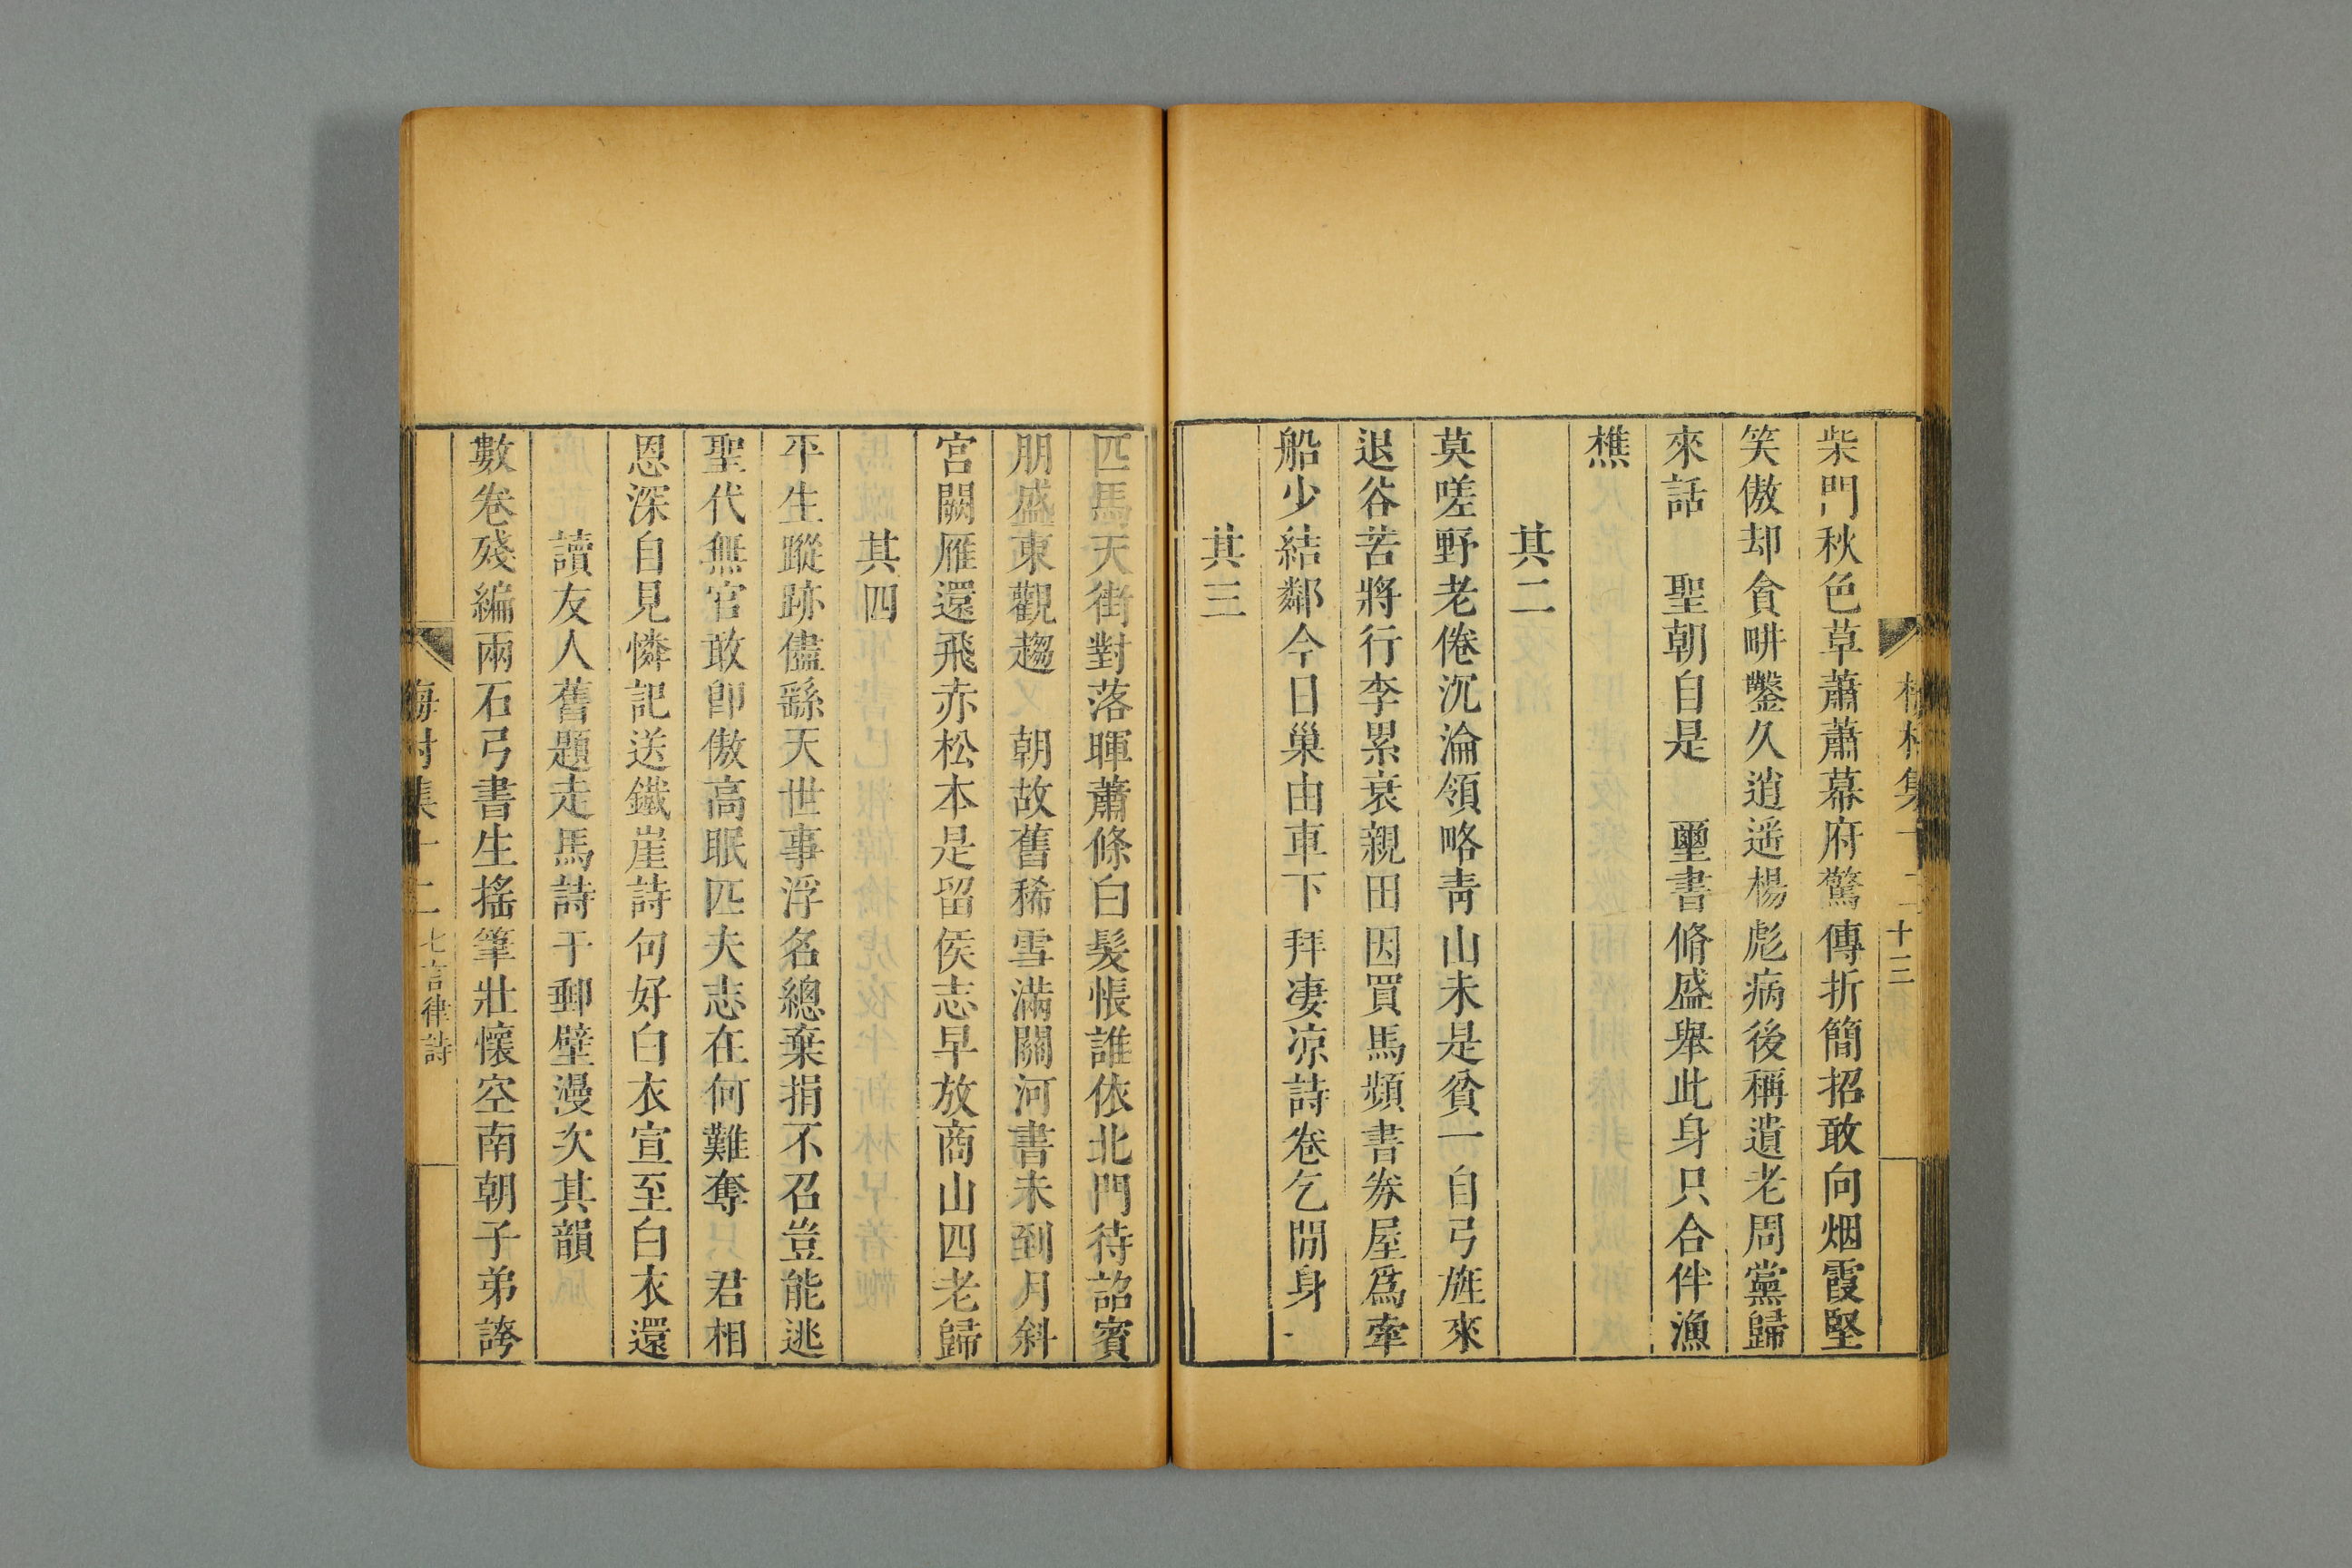 十三
柴門秋色草蕭蕭幕府驚傳折簡招敢向烟霞堅
笑傲却貪畊鑿久逍遥楊彪病後稱遺老周黨歸
來話 聖朝自是 璽書脩盛舉此身只合伴漁
樵
其二
莫嗟野老倦沉淪領略青山未是貧一自弓旌來
退谷苦將行李累衰親田因買馬頻書券屋爲牽
船少結鄰今日巢由車下拜凄凉詩卷乞閒身
其三
匹馬天街對落暉蕭條白髮悵誰依北門待詔賓
朋盛東觀趨 朝故舊稀雪滿關河書未到月斜
宮闕雁還飛赤松本是留侯志早放商山四老歸
其四
平生蹤跡儘繇天世事浮名總棄捐不召豈能逃
聖代無官敢卽傲高眠匹夫志在何難奪 君相
恩深自見憐記送鐵崖詩句好白衣宣至白衣還
讀友人舊題走馬詩于郵壁漫次其韻
數卷殘編兩石弓書生搖筆壯懷空南朝子弟誇
梅村集十二 七言律詩